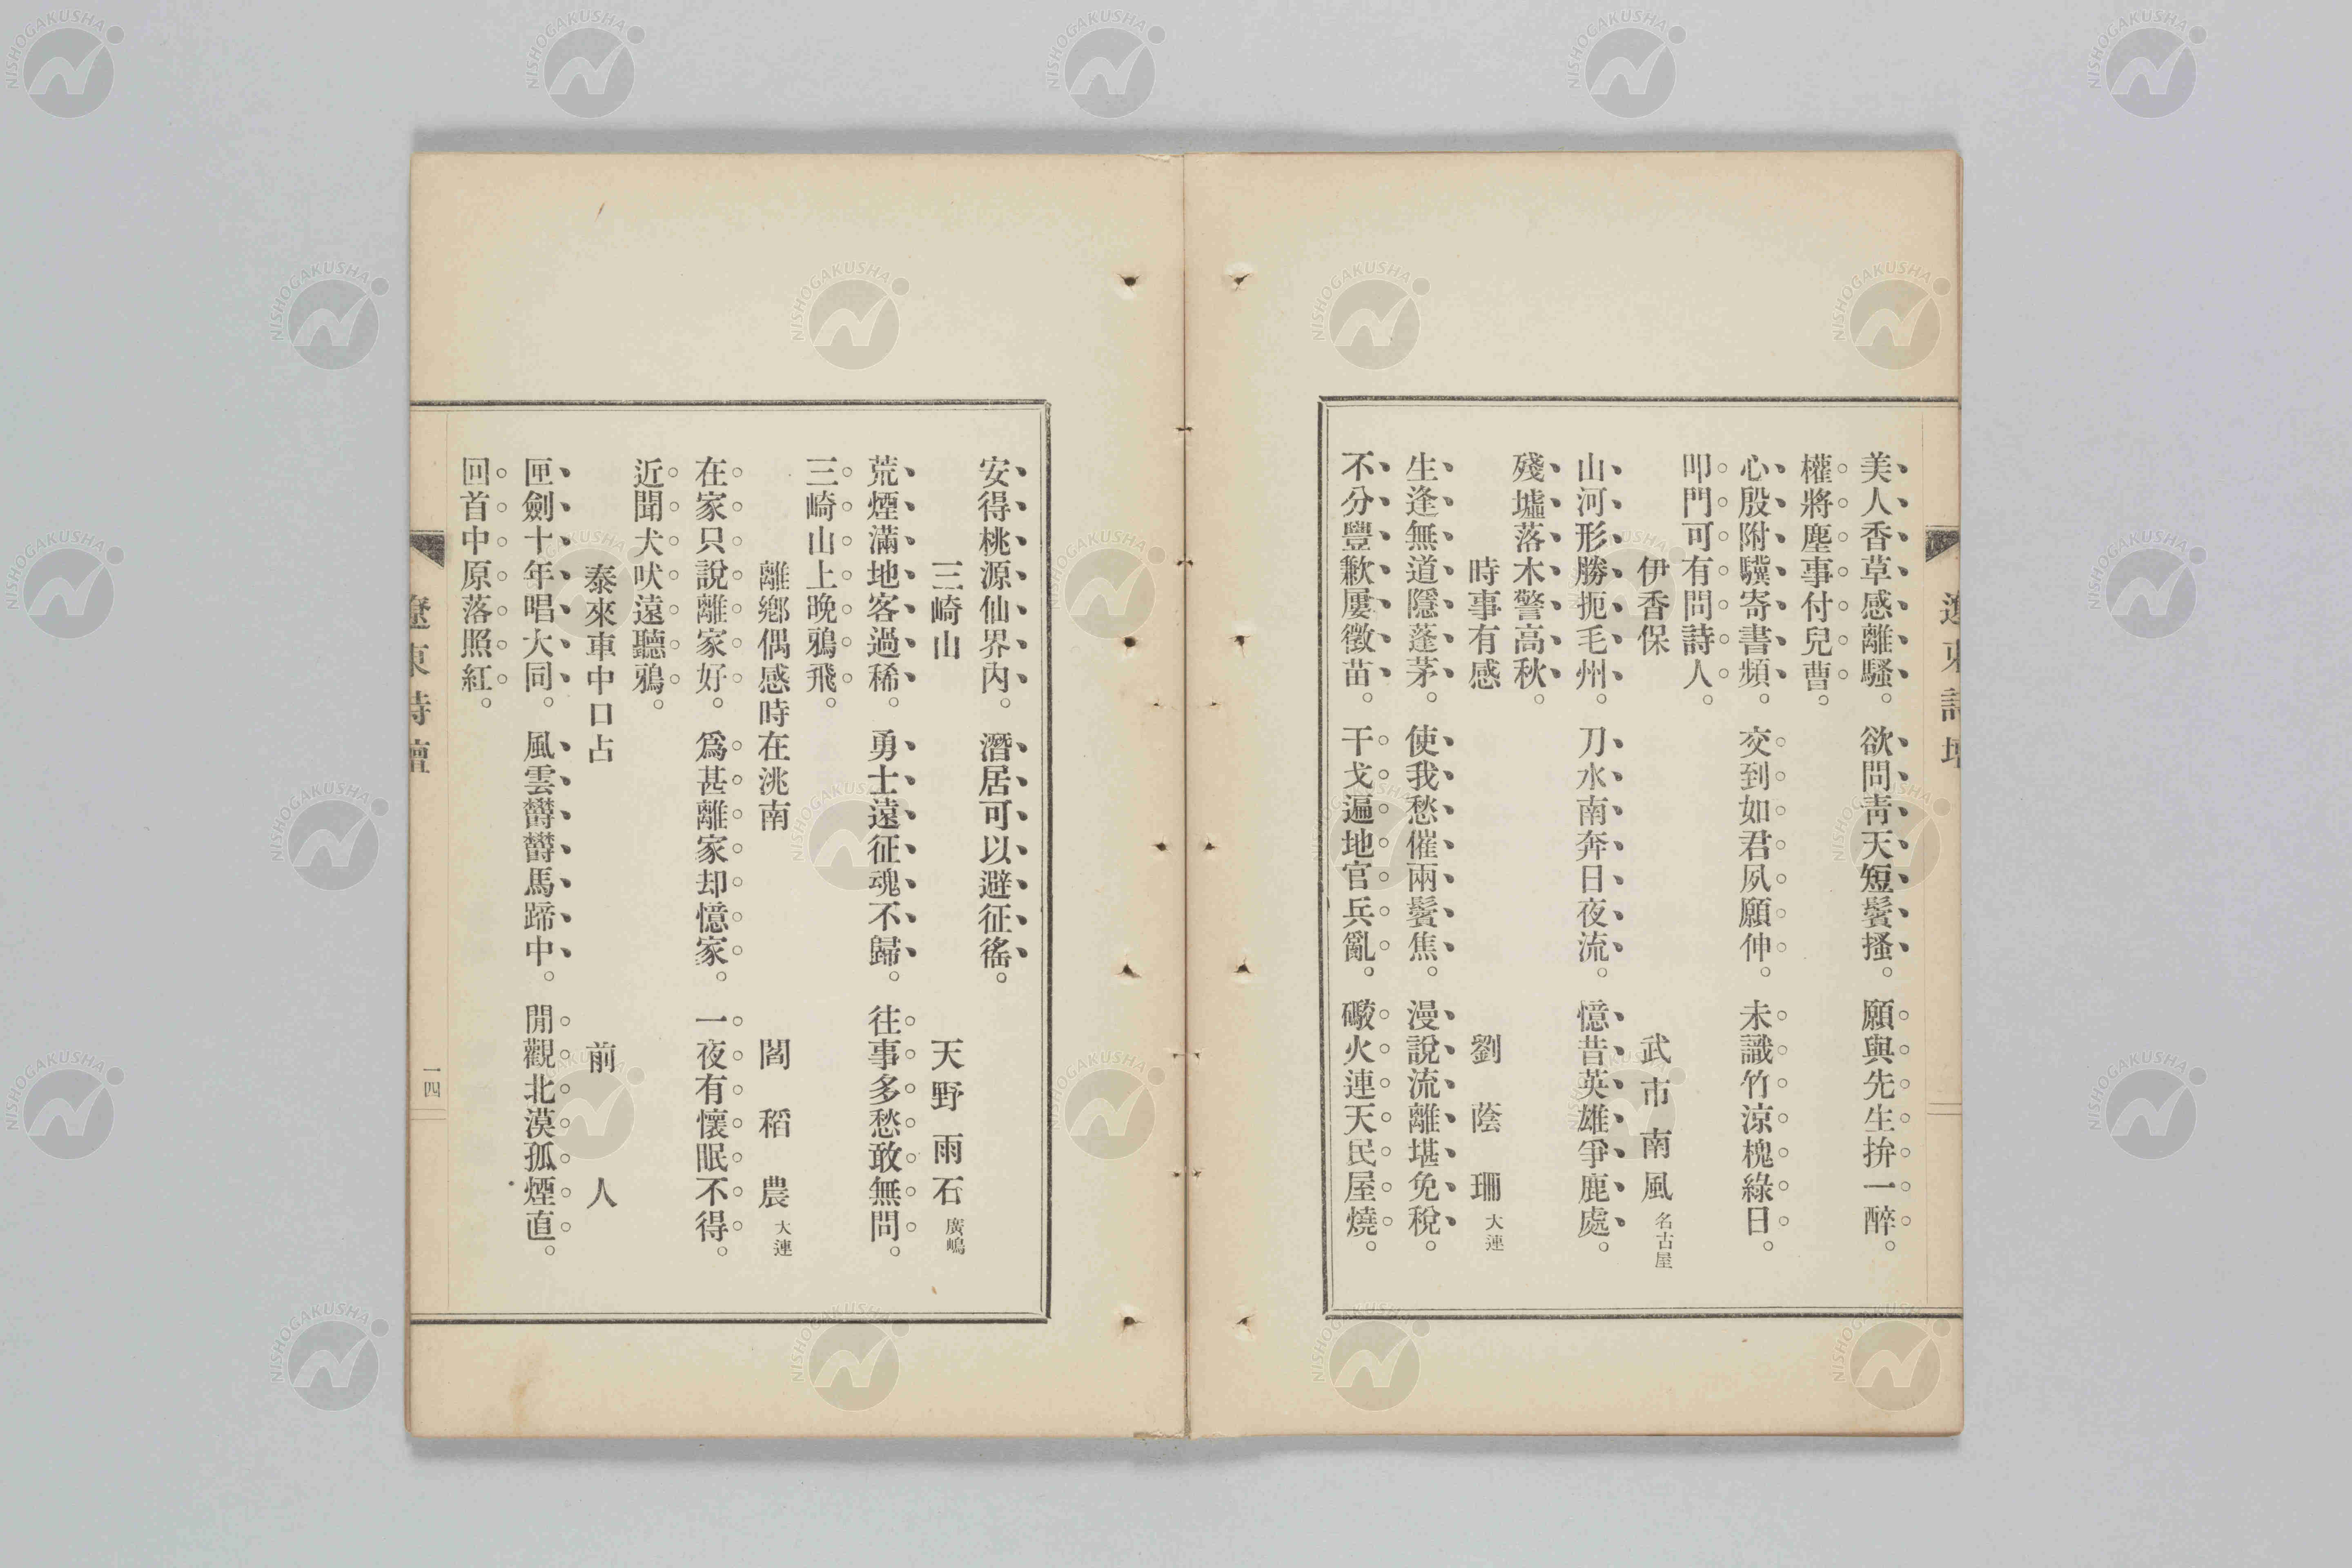 美人香草感離騷。欲問靑天短鬢搔。願與先生拚一醉。
權將塵事付兒曹。
心殷附驥寄書頻。交到如君夙願伸。未識竹涼槐綠日。
叩門可有問詩人。
伊香保　武市南風 名古屋
山河形勝扼毛州。刀水南奔日夜流。憶昔英雄爭鹿處。
殘墟落木警高秋。
時事有感　劉蔭珊 大連
生逢無道隱蓬茅。使我愁催兩鬢焦。漫說流離堪免稅。
不分豐歉屢徵苗。干戈遍地官兵亂。礮火連天民屋燒。
安得桃源仙界內。潛居可以避征徭。
三崎山　天野雨石 廣嶋
荒煙滿地客過稀。勇士遠征魂不歸。往事多愁敢無問。
三崎山上晚鴉飛。
離鄕偶感時在洮南　閻稻農 大連
在家只說離家好。爲甚離家却憶家。一夜有懷眠不得。
近聞犬吠遠聽鴉。
泰來車中口占　前人
匣劍十年唱大同。風雲欝欝馬蹄中。閒觀北漠孤煙直。
回首中原落照紅。
遼東詩壇
一四
NISHOGAKUSHA